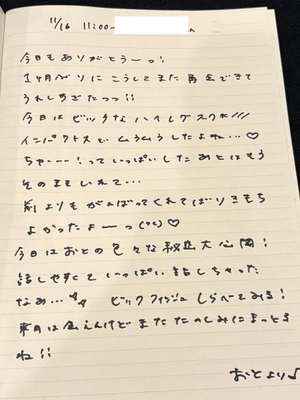 11/16 11:00~
今日もありがとうーっ!
1ヶ月ぶりにこうしてまた再会できて
うれしすぎたっっ!!
今日はビッチな
インパクト でムラムラしたよね…♡
ちゃーー!っていっぱいしたあとはもう
そのままいれて…
前よりもがんばってくれてばりきもち
よかったよーっ(°C)♡
今日はおとの色々な秘密大公開!
話しやすくていっぱい話しちゃった
なぁ… ビックフィッシュ しらべてみる!
来月は会えんけどまたたのしみにまっとる
ね!!
おとより♪